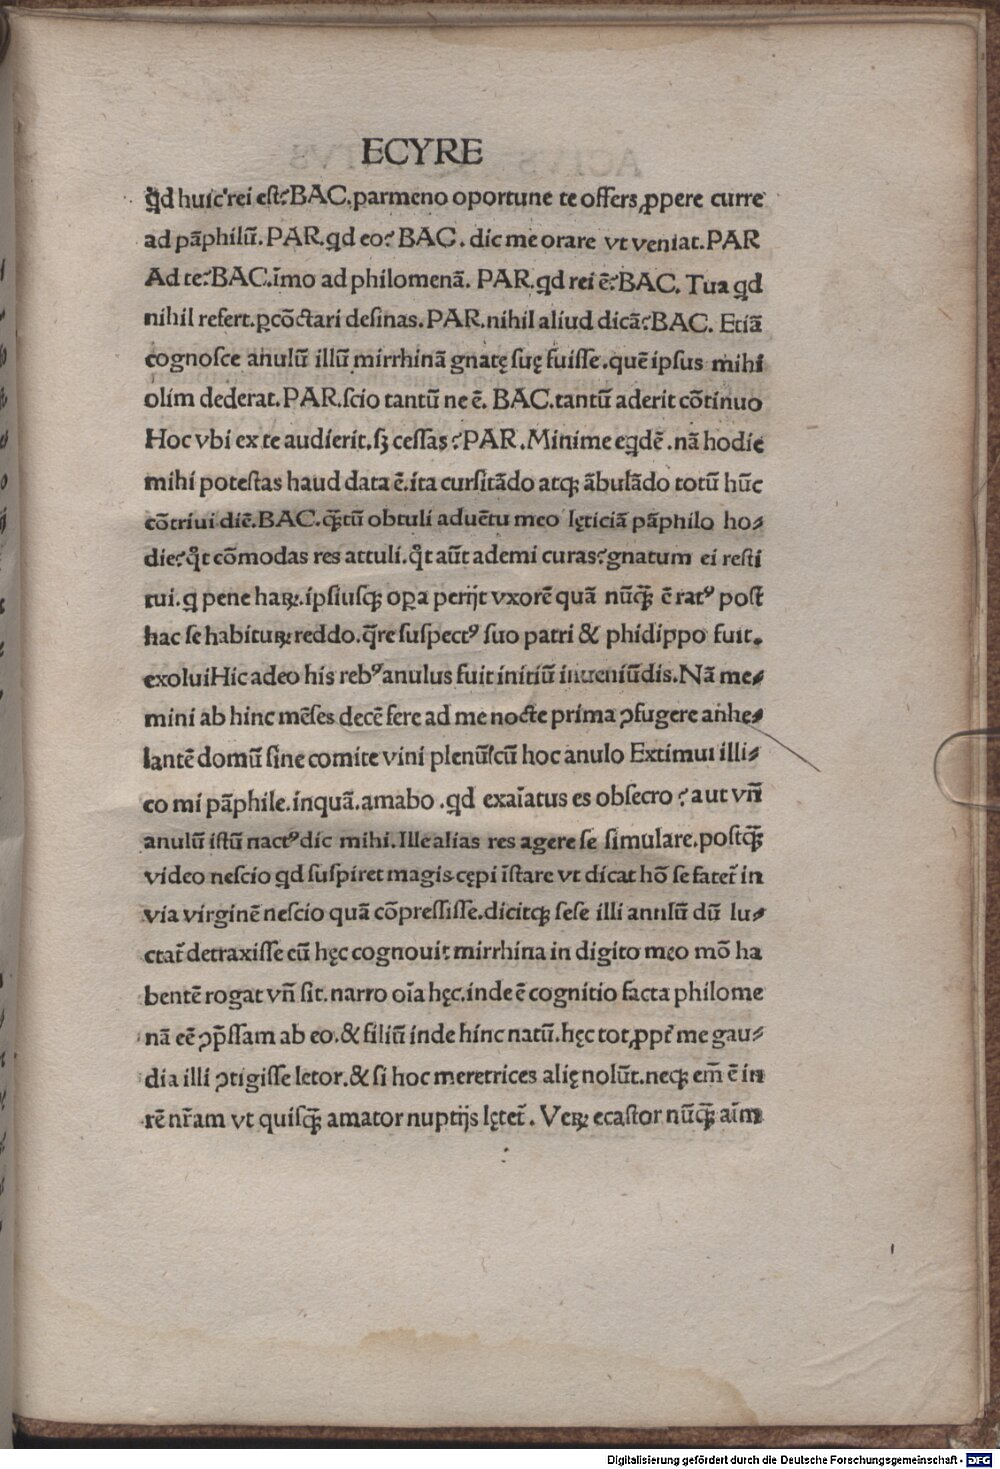 ECYRE
qd huic rei est? BAC. parmeno oportune te offers, ꝓpere curre
ad pãphilũ. PAR. qd eo? BAC. dic me orare vt veniat. PAR
Ad te? BAC. ĩmo ad philomenã. PAR. qd rei ẽ? BAC. Tua qd
nihil refert. ꝑcõctari desinas. PAR. nihil aliud dicã? BAC. Etiã
cognosce anulũ illũ mirrhinã gnatę suę fuisse. quẽ ipsus mihi
olim dederat. PAR. scio tantũ ne ẽ. BAC. tantũ aderit cõtinuo
Hoc vbi ex te audierit. sꝫ cessas? PAR. Minime eqdẽ. nã hodie
mihi potestas haud data ẽ. ita cursitãdo atqꝫ ãbulãdo totũ hũc
cõtriui diẽ. BAC. q̃tũ obtuli aduẽtu meo lęticiã pãphilo ho⸗
die? qͥt cõmodas res attuli. qͥt aũt ademi curas? gnatum ei resti
tui. q pene haꝝ. ipsiusqꝫ oꝑa perijt vxorẽ quã nũq̃ꝫ ẽ ratꝰ post
hac se habituꝝ reddo. q̃re suspectꝰ suo patri & phidippo fuit.
exolui Hic adeo his rebꝰ anulus fuit initiũ inueniũdis. Nã me⸗
mini ab hinc mẽses decẽ fere ad me nocte prima ꝯfugere anhe⸗
lantẽ domũ sine comite vini plenũ cũ hoc anulo Extimui illi⸗
co mi pãphile. inquã. amabo. qd exaĩatus es obsecro? aut vñ
anulũ istũ nactꝰ dic mihi. Ille alias res agere se simulare. postq̃ꝫ
video nescio qd suspiret magis cępi ĩstare vt dicat hõ se fater̃ in
via virginẽ nescio quã cõpressisse. dicitqꝫ sese illi anulũ dũ lu⸗
ctar̃ detraxisse eũ hęc cognouit mirrhina in digito meo mõ ha
bentẽ rogat vñ sit. narro oĩa hęc. inde ẽ cognitio facta philome
nã eẽ ꝯp̃ssam ab eo. & filiũ inde hinc natũ. hęc tot ꝓpt̃ me gau⸗
dia illi ꝯtigisse letor. & si hoc meretrices alię nolũt. neqꝫ em̃ ẽ in
rẽ nr̃am vt quisq̃ꝫ amator nuptijs lętet̃. Veꝝ ecastor nũq̃ꝫ aĩm
Digitalisierung gefördert durch die Deutsche Forschungsgemeinschaft - DFG